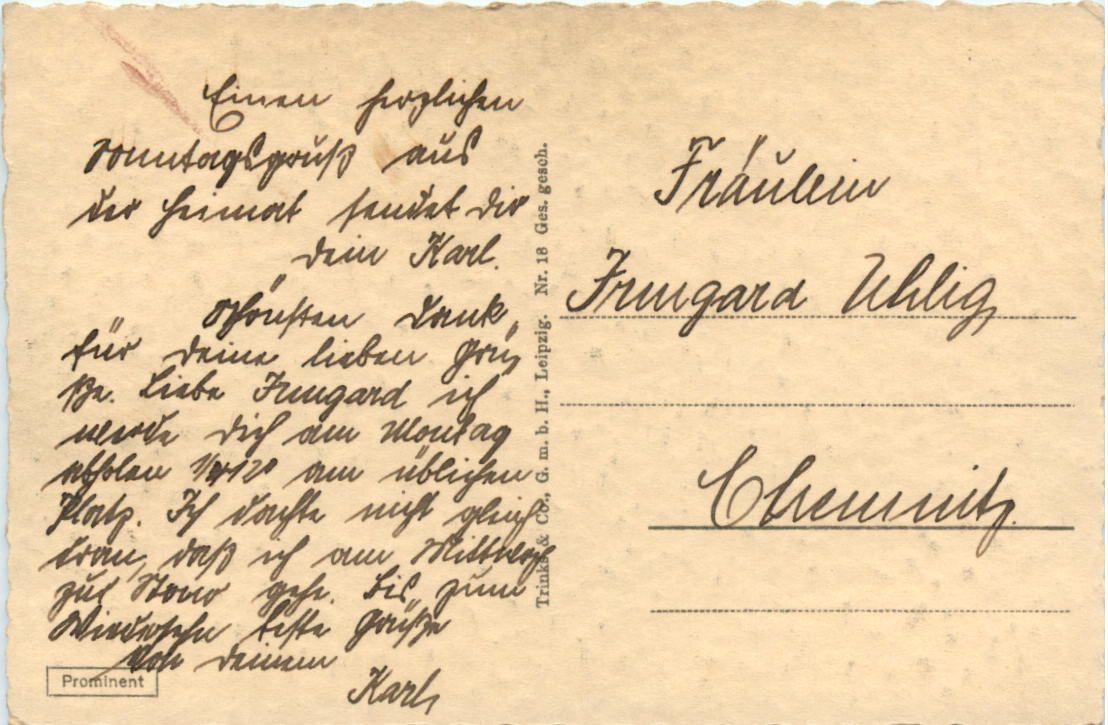 Einen herzlichen
Sonntagsgruß aus
der Heimat sendet Dir
Dein Karl.
Schönsten Dank
für Deine lieben Grü„
ße. Liebe Irmgard ich
werde Dich am Montag
abholen am üblichen
Platz. Ich dachte nicht gleich
dran, daß ich am Mittwoch
zur gehe. Bis zum
Wiedersehn beste Grüße
von Deinem
Karl,
Prominent
Trinks & Co., G. m. b. H., Leipzig. Nr. 18 Ges. gesch.
Fräulein
Irmgard Uhlig,
Chemnitz.